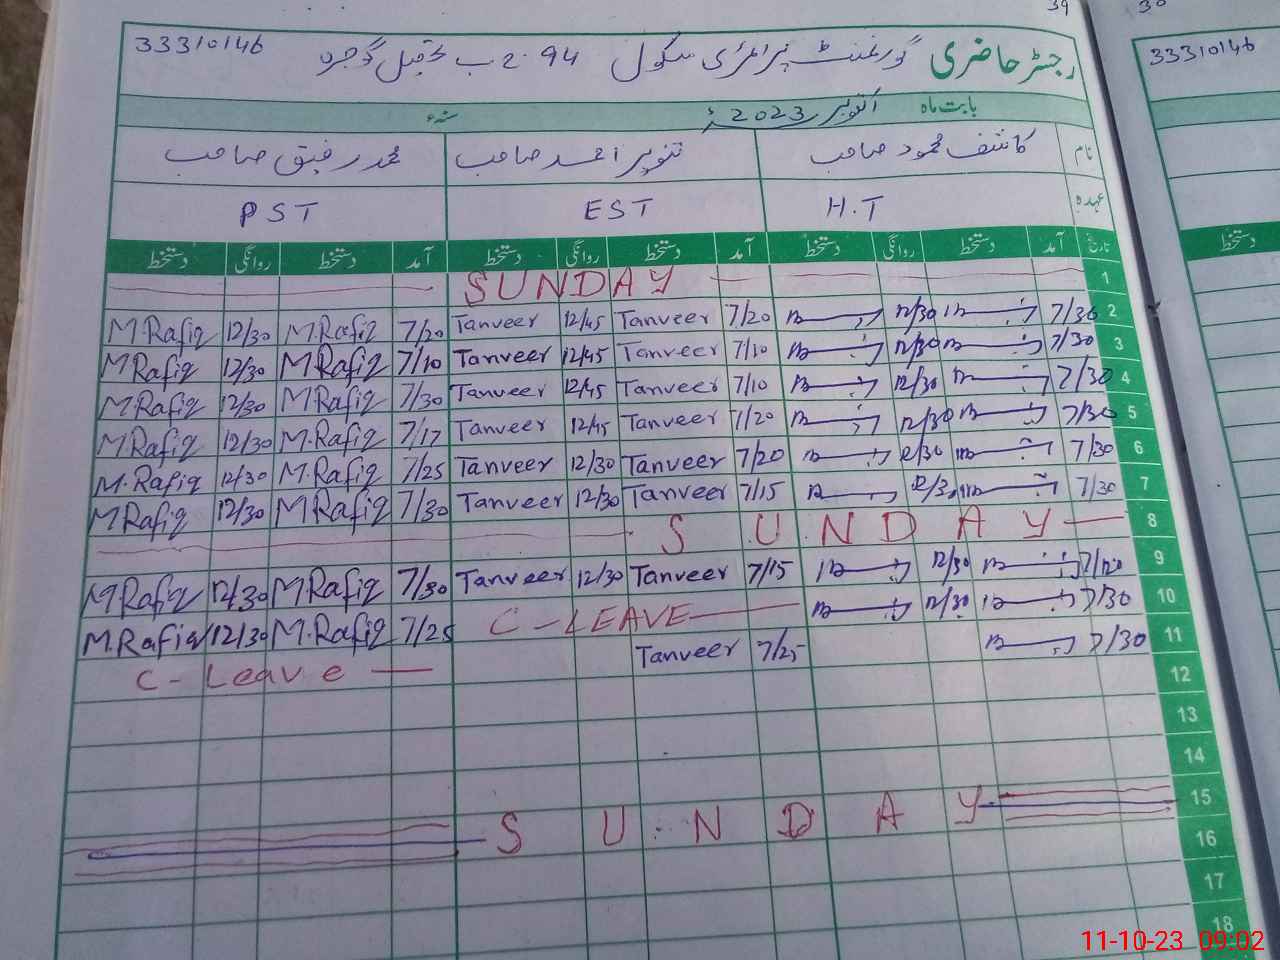 39
30
رجسٹر حاضری گورنمنٹ پرائمری سکول 94-2 ب تحصیل گوجرہ 33310146
33310146
بابت ماہ اکتوبر 2023ء سنہء
نام کاشف محمود صاحب تنویر احمد صاحب محمد رفیق صاحب
عہدہ H.T EST PST
تاریخ آمد دستخط روانگی دستخط آمد دستخط روانگی دستخط آمد دستخط روانگی دستخط
دستخط
1 SUNDAY
2 7/30 12/30 7/20 Tanveer 12/45 Tanveer 7/20 M.Rafiq 12/30 M.Rafiq
3 7/30 12/30 7/10 Tanveer 12/45 Tanveer 7/10 M Rafiq 12/30 M Rafiq
4 7/30 12/30 7/10 Tanveer 12/45 Tanveer 7/30 M Rafiq 12/30 M Rafiq
5 7/30 12/30 7/20 Tanveer 12/45 Tanveer 7/17 M.Rafiq 12/30 M Rafiq
6 7/30 12/30 7/20 Tanveer 12/30 Tanveer 7/25 M.Rafiq 12/30 M.Rafiq
7 7/30 12/30 7/15 Tanveer 12/30 Tanveer 7/30 M Rafiq 12/30 M Rafiq
8 SUNDAY
9 12/30 7/15 Tanveer 12/30 Tanveer 7/30 M Rafiq 12/30 M Rafiq
10 7/30 12/30 C-LEAVE 7/25 M.Rafiq 12/30 M.Rafiq
11 7/30 7/25 Tanveer C-Leave
12
13
14
15 SUNDAY
16
17
18
11-10-23 09:02